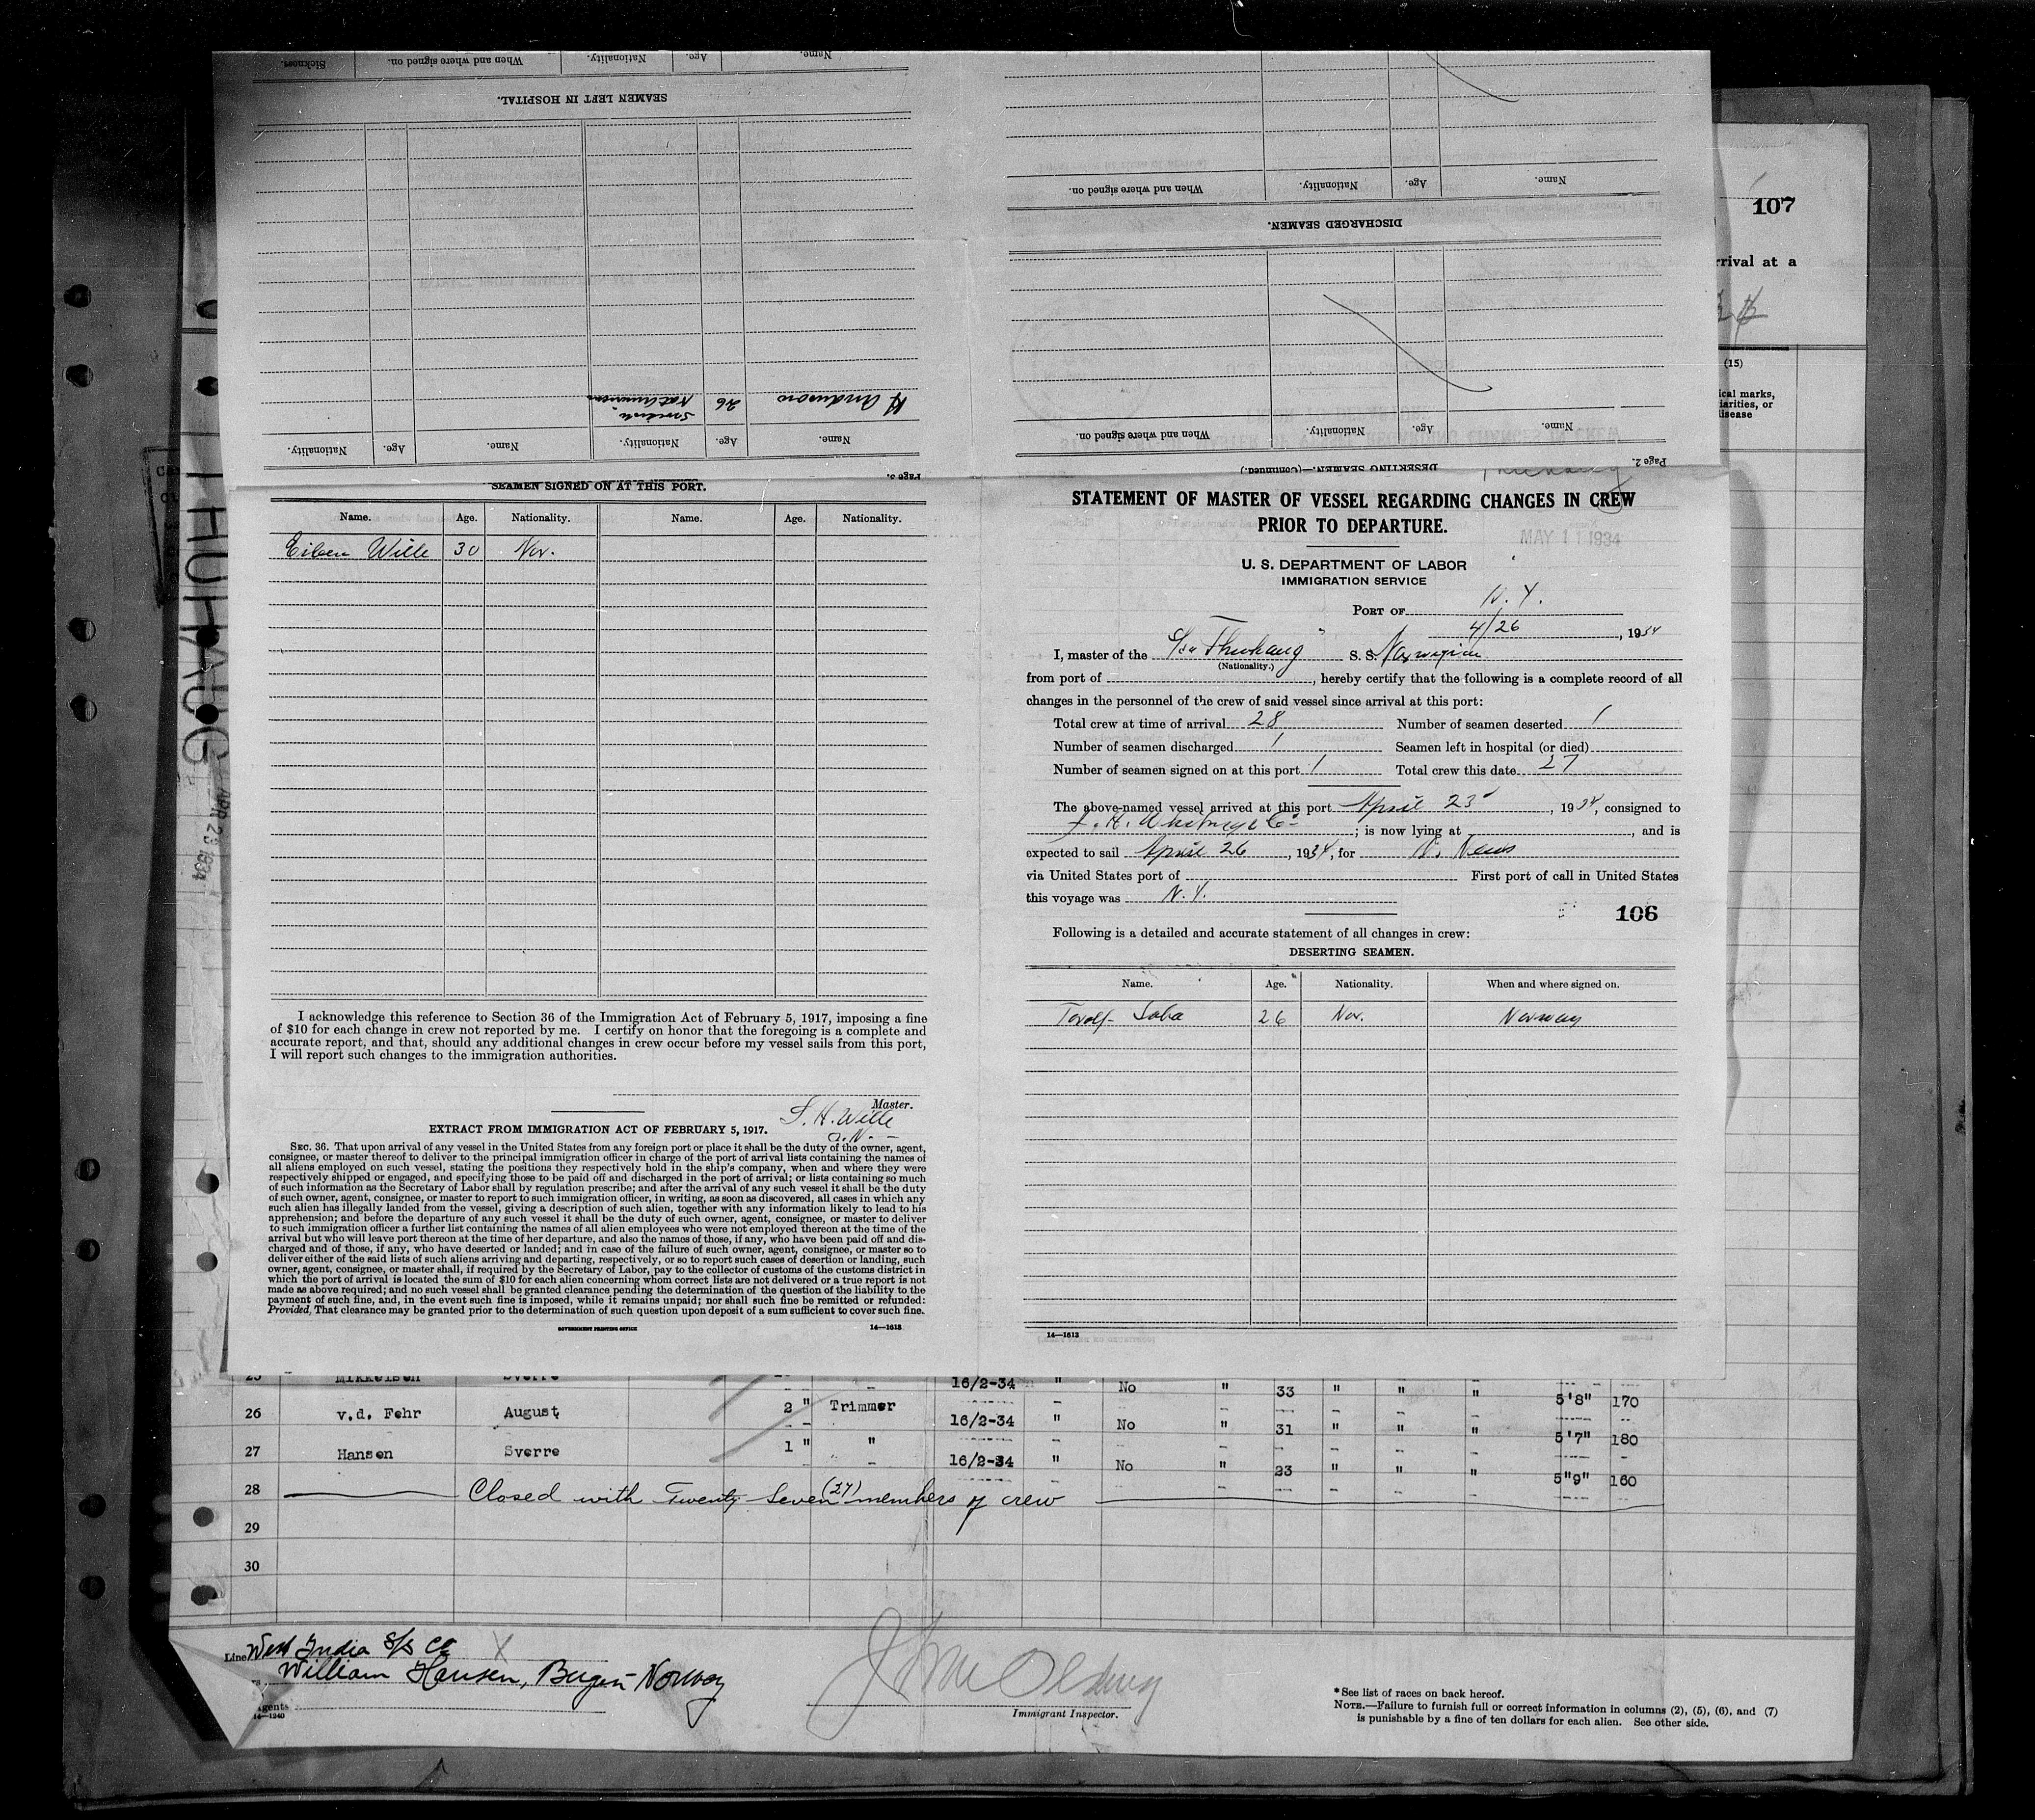 Sickness.
When and where signed on.
Nationality.
Age.
Name.
SEAMEN LEFT IN HOSPITAL.
26
Nationality.
Age.
Name.
Nationality.
Age.
Name.
Page 3.
When and where signed on.
Nationality.
Age.
Name.
DISCHARGED SEAMEN.
When and where signed on.
Nationality.
Age.
Name.
DESERTING SEAMEN.—(Continued.)
Page 2.
107
rrival at a
(15)
ical marks,
iarities, or
disease
THUHAUG
APR 23 1934
SEAMEN SIGNED ON AT THIS PORT.
Name. Age. Nationality. Name. Age. Nationality.
Eiben Wille 30 Nor.
I acknowledge this reference to Section 36 of the Immigration Act of February 5, 1917, imposing a fine
of $10 for each change in crew not reported by me. I certify on honor that the foregoing is a complete and
accurate report, and that, should any additional changes in crew occur before my vessel sails from this port,
I will report such changes to the immigration authorities.
Master.
S. H. Wille
EXTRACT FROM IMMIGRATION ACT OF FEBRUARY 5, 1917.
SEC. 36. That upon arrival of any vessel in the United States from any foreign port or place it shall be the duty of the owner, agent,
consignee, or master thereof to deliver to the principal immigration officer in charge of the port of arrival lists containing the names of
all aliens employed on such vessel, stating the positions they respectively hold in the ship's company, when and where they were
respectively shipped or engaged, and specifying those to be paid off and discharged in the port of arrival; or lists containing so much
of such information as the Secretary of Labor shall by regulation prescribe; and after the arrival of any such vessel it shall be the duty
of such owner, agent, consignee, or master to report to such immigration officer, in writing, as soon as discovered, all cases in which any
such alien has illegally landed from the vessel, giving a description of such alien, together with any information likely to lead to his
apprehension; and before the departure of any such vessel it shall be the duty of such owner, agent, consignee, or master to deliver
to such immigration officer a further list containing the names of all alien employees who were not employed thereon at the time of the
arrival but who will leave port thereon at the time of her departure, and also the names of those, if any, who have been paid off and dis-
charged and of those, if any, who have deserted or landed; and in case of the failure of such owner, agent, consignee, or master so to
deliver either of the said lists of such aliens arriving and departing, respectively, or so to report such cases of desertion or landing, such
owner, agent, consignee, or master shall, if required by the Secretary of Labor, pay to the collector of customs of the customs district in
which the port of arrival is located the sum of $10 for each alien concerning whom correct lists are not delivered or a true report is not
made as above required; and no such vessel shall be granted clearance pending the determination of the question of the liability to the
payment of such fine, and, in the event such fine is imposed, while it remains unpaid; nor shall such fine be remitted or refunded:
Provided, That clearance may be granted prior to the determination of such question upon deposit of a sum sufficient to cover such fine.
GOVERNMENT PRINTING OFFICE 14—1613
STATEMENT OF MASTER OF VESSEL REGARDING CHANGES IN CREW
PRIOR TO DEPARTURE.
MAY 11 1934
U. S. DEPARTMENT OF LABOR
IMMIGRATION SERVICE
PORT OF N. Y.
4/26, 1934
I, master of the S/S "Thuhaug" S. S. Norwegian
(Nationality.)
from port of , hereby certify that the following is a complete record of all
changes in the personnel of the crew of said vessel since arrival at this port:
Total crew at time of arrival 28 Number of seamen deserted 1
Number of seamen discharged 1 Seamen left in hospital (or died)
Number of seamen signed on at this port 1 Total crew this date 27
The above-named vessel arrived at this port April 23, 1934, consigned to
; is now lying at , and is
expected to sail April 26, 1934, for N. News
via United States port of First port of call in United States
this voyage was N. Y.
106
Following is a detailed and accurate statement of all changes in crew:
DESERTING SEAMEN.
Name. Age. Nationality. When and where signed on.
Toralf Saba 26 Nor. Norway
14—1613
25 Mikkelsen Sverre 16/2-34 " No " 33 " " " 5'8" 170
26 v.d. Fehr August 2 " Trimmer 16/2-34 " No " 31 " " " 5'7" 180
27 Hansen Sverre 1 " " 16/2-34 " No " 23 " " " 5"9" 160
28 Closed with Twenty Seven (27) members of crew
29
30
Line West India S/S Co
William Hansen, Bergen Norway
gents
14—1240
Immigrant Inspector.
*See list of races on back hereof.
NOTE.—Failure to furnish full or correct information in columns (2), (5), (6), and (7)
is punishable by a fine of ten dollars for each alien. See other side.